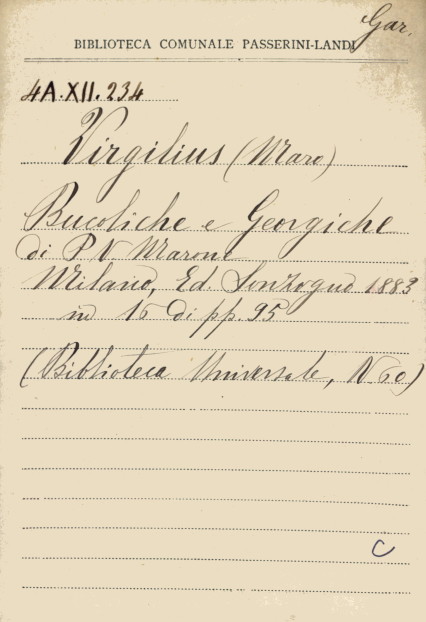 Gar.
BIBLIOTECA COMUNALE PASSERINI-LANDI
4A.XII.234
Virgilius (Maro)
Bucoliche e Georgiche
di P. V. Marone
Milano, Ed. Sonzogno 1883
in 16 di pp. 95
(Biblioteca Universale, N 60)
C